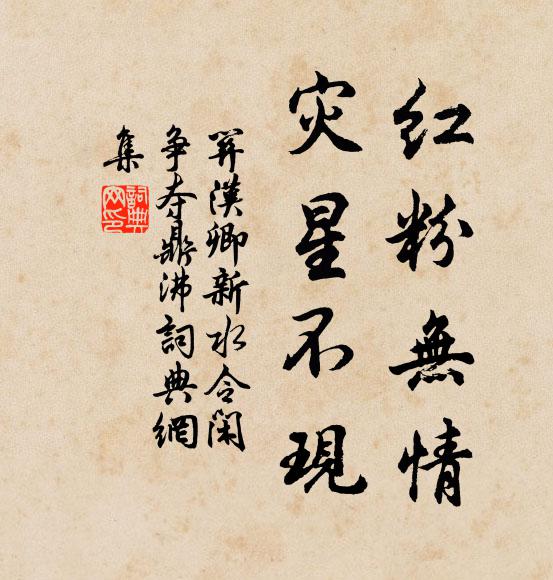 红粉無情
灾星不現
关漢卿新水令閑
争夺鼎沸詞典網
集
詞典网印